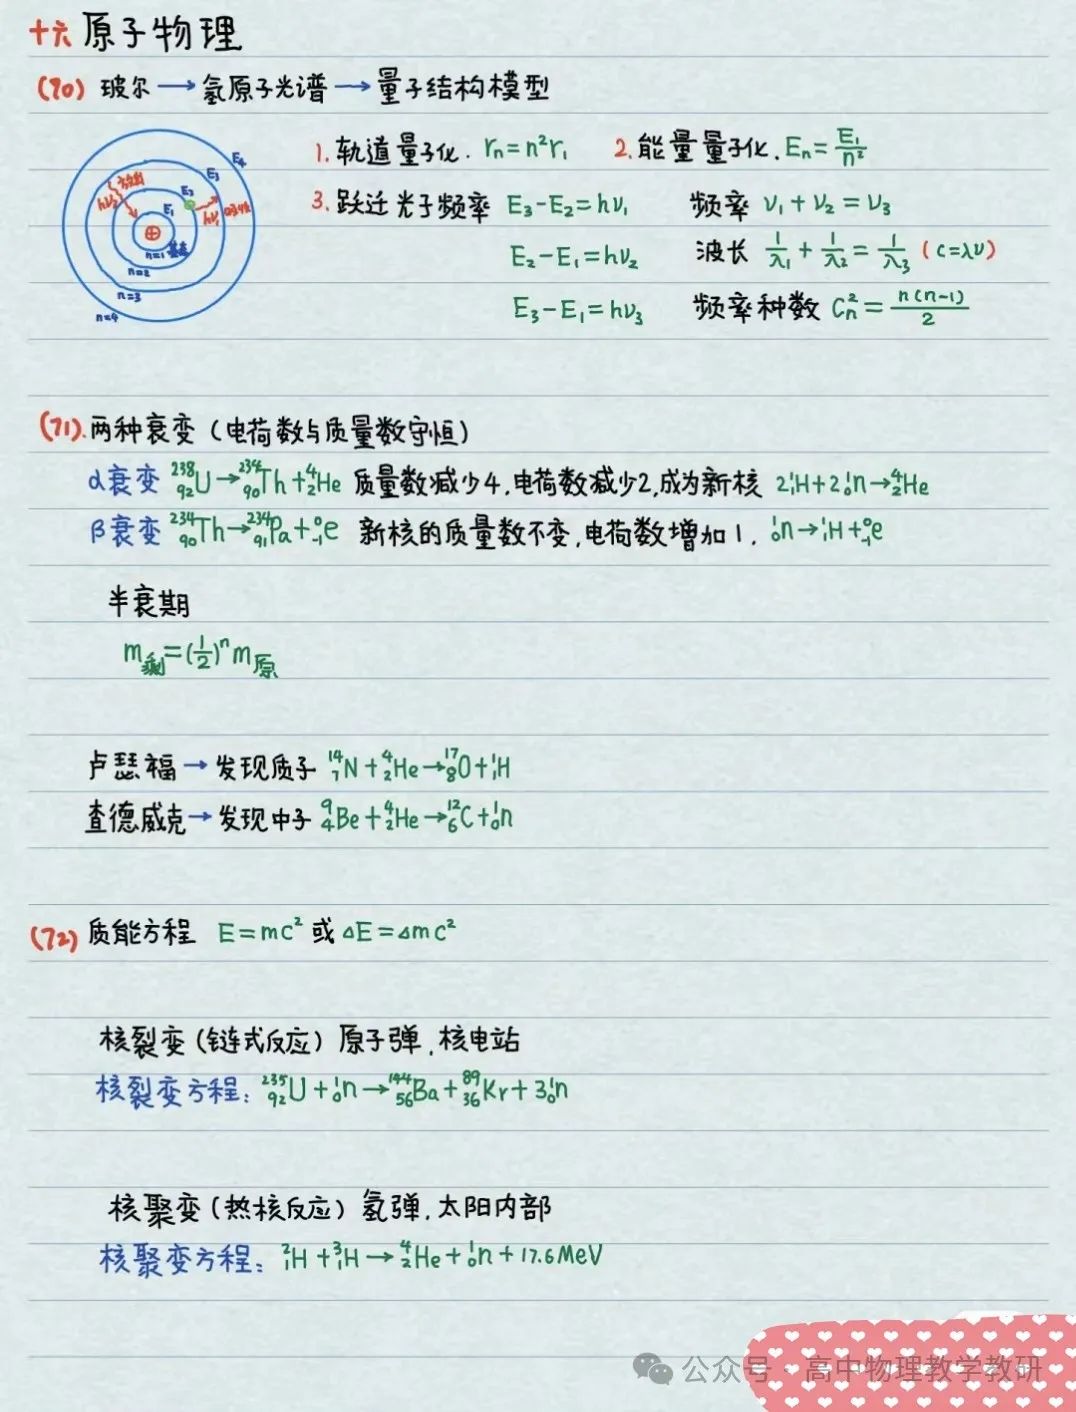 十六 原子物理
(70) 玻尔→氢原子光谱→量子结构模型
1. 轨道量子化. rₙ=n²r₁ 2. 能量量子化. Eₙ=E₁/n²
3. 跃迁光子频率 E₃-E₂=hν₁ 频率 ν₁+ν₂=ν₃
E₂-E₁=hν₂ 波长 1/λ₁+1/λ₂=1/λ₃ (c=λν)
E₃-E₁=hν₃ 频率种数 Cₙ²=n(n-1)/2
E₄
E₃
E₂
E₁
放出
hν₂
hν₁ 吸收
n=1 基态
n=2
n=3
n=4
(71).两种衰变(电荷数与质量数守恒)
α衰变 ²³⁸₉₂U→²³⁴₉₀Th+⁴₂He 质量数减少4,电荷数减少2,成为新核 2¹₁H+2¹₀n→⁴₂He
β衰变 ²³⁴₉₀Th→²³⁴₉₁Pa+⁰₋₁e 新核的质量数不变,电荷数增加1. ¹₀n→¹₁H+⁰₋₁e
半衰期
m剩=(1/2)ⁿm原
卢瑟福→发现质子 ¹⁴₇N+⁴₂He→¹⁷₈O+¹₁H
查德威克→发现中子 ⁹₄Be+⁴₂He→¹²₆C+¹₀n
(72) 质能方程 E=mc² 或 ΔE=Δmc²
核裂变(链式反应)原子弹,核电站
核裂变方程: ²³⁵₉₂U+¹₀n→¹⁴⁴₅₆Ba+⁸⁹₃₆Kr+3¹₀n
核聚变(热核反应)氢弹,太阳内部
核聚变方程: ²₁H+³₁H→⁴₂He+¹₀n+17.6MeV
公众号·高中物理教学教研